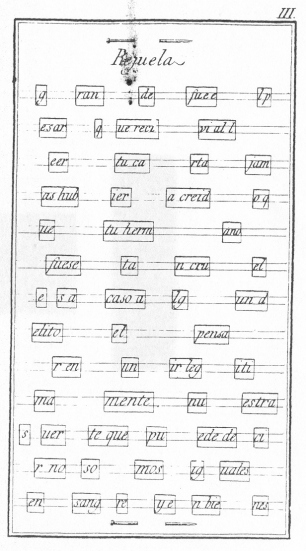 III.
Rejuela
g ran de fue e lp
esar q ue reci vi al l
eer tu ca rta jam
as hub ier a creid o q
ue tu herm ano
fuese ta n cru el
e s a caso a lg un d
elito el pensa
r en un ir leg iti
ma mente nu estra
s uer te que pu ede de ci
r no so mos ig uales
en sang re y e n bie nes